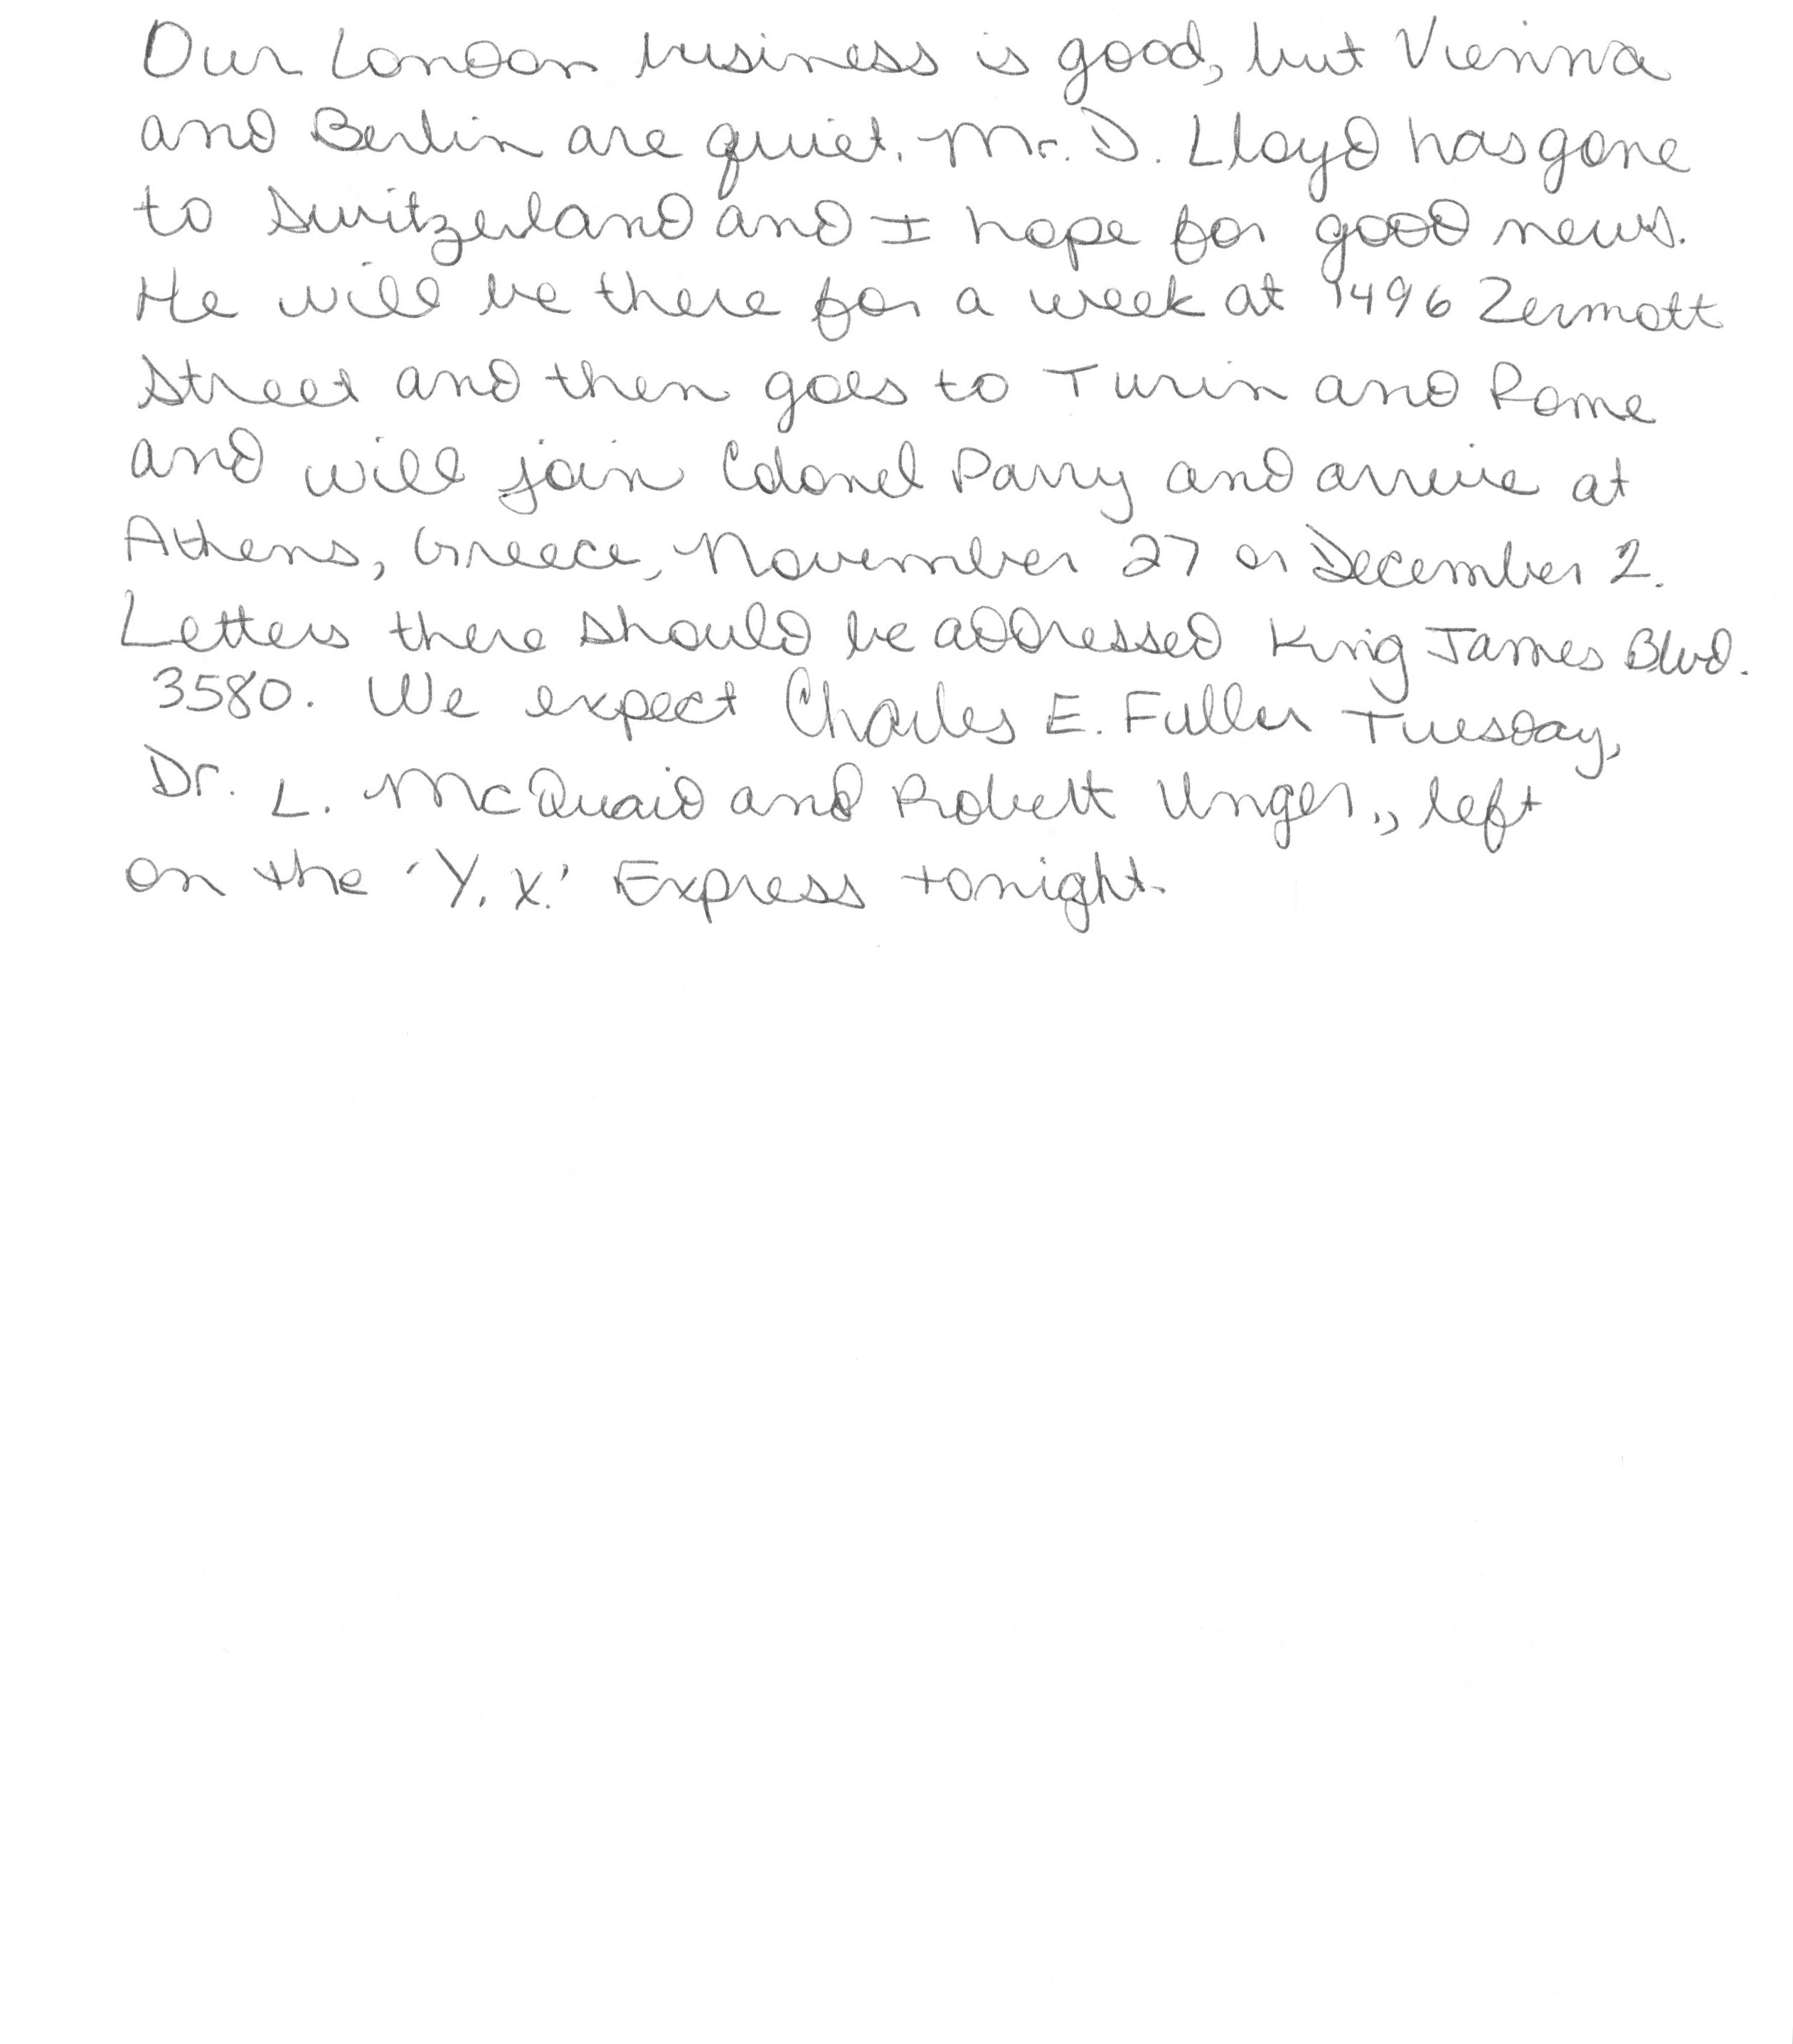 Our London business is good, but Vienna
and Berlin are quiet. Mr. D. Lloyd has gone
to Switzerland and I hope for good news.
He will be there for a week at 1496 Zermott
Street and then goes to Turin and Rome
and will join Colonel Parry and arrive at
Athens, Greece, November 27 or December 2.
Letters there should be addressed King James Blvd.
3580. We expect Charles E. Fuller Tuesday,
Dr. L. McQuaid and Robert Unger., left
on the 'Y.X.' Express tonight.